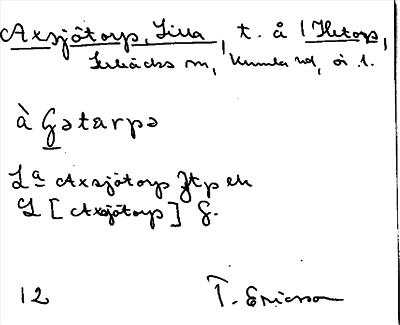 Axsjötorp, Lilla, t. å
Lerbäcks sn, Kumla hd, ö. l.
à Gətarpə
La Axsjötorp Jtp ek
L [Axsjötorp] G.
12 T. Ericsson